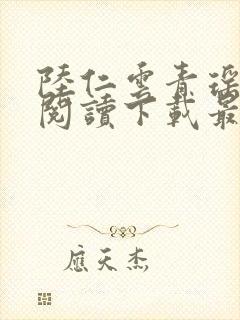 陸仁雲青瑶
閱讀下載最
應天杰